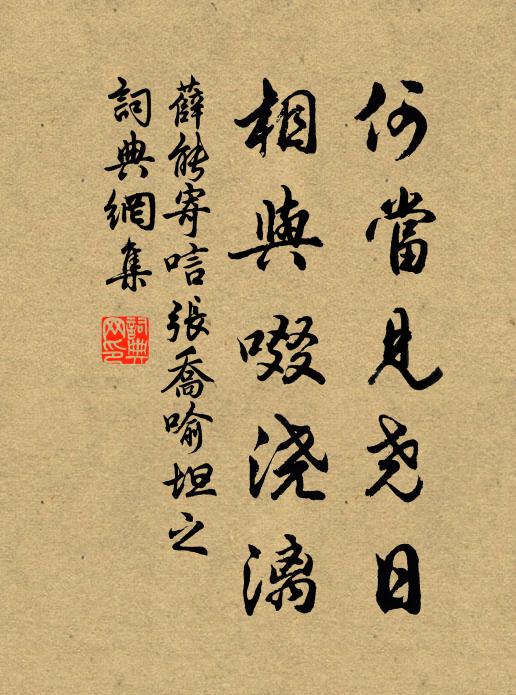 何當見尧日
相與啜浇漓
薛能寄唁張喬喻坦之
詞典網集
詞典网印